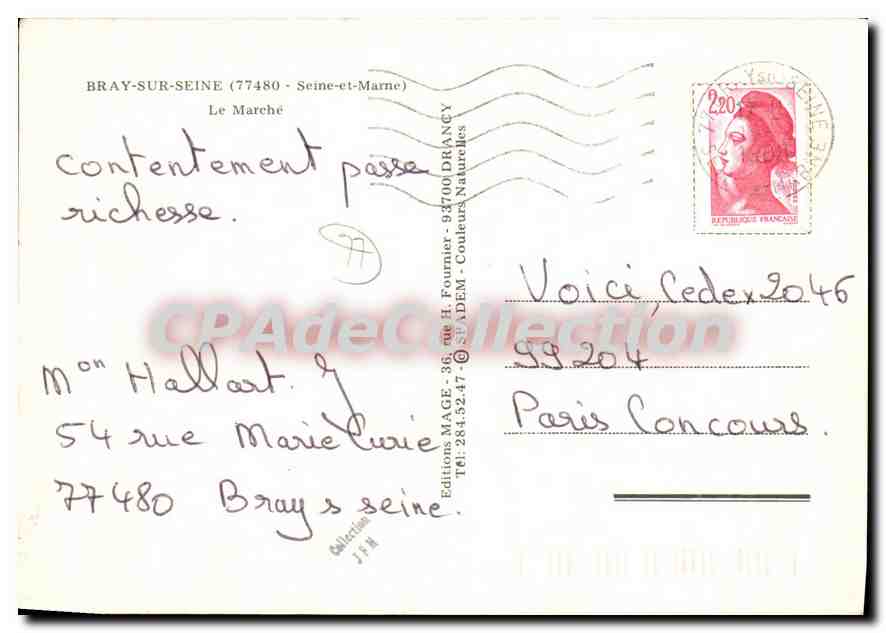 BRAY-SUR-SEINE (77480 - Seine-et-Marne)
Le Marché
contentement passe
richesse.
77
Mon Hallart. J
54 rue Marie Curie
77480 Bray s seine.
Collection
J F N
Editions MAGE - 36, rue H. Fournier - 93700 DRANCY
Tél: 284.52.47 - © SPADEM - Couleurs Naturelles
2,20
REPUBLIQUE FRANÇAISE
SEINE
Voici, Cedex 2046
99204
Paris Concours.
CPAdeCollection